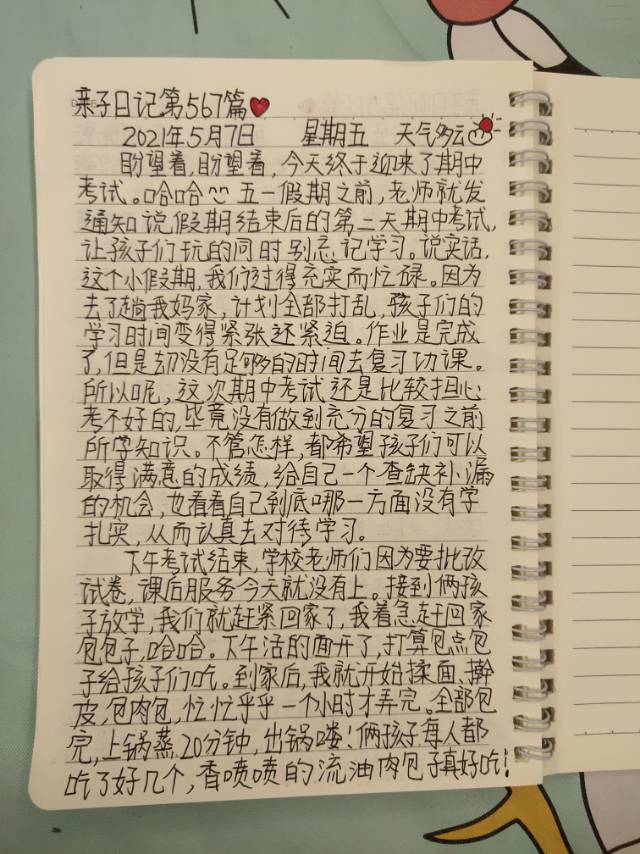 亲子日记第567篇
2021年5月7日 星期五 天气多云
盼望着,盼望着,今天终于迎来了期中
考试。哈哈 五一假期之前,老师就发
通知说假期结束后的第二天期中考试,
让孩子们玩的同时别忘记学习。说实话,
这个小假期,我们过得充实而忙碌。因为
去了趟我妈家,计划全部打乱,孩子们的
学习时间变得紧张还紧迫。作业是完成
了,但是却没有足够的时间去复习功课。
所以呢,这次期中考试还是比较担心
考不好的,毕竟没有做到充分的复习之前
所学知识。不管怎样,都希望孩子们可以
取得满意的成绩,给自己一个查缺补漏
的机会,也看看自己到底哪一方面没有学
扎实,从而认真去对待学习。
下午考试结束,学校老师们因为要批改
试卷,课后服务今天就没有上。接到俩孩
子放学,我们就赶紧回家了,我着急赶回家
包包子,哈哈。下午活的面开了,打算包点包
子给孩子们吃。到家后,我就开始揉面、擀
皮,包肉包,忙忙乎乎一个小时才弄完。全部包
完,上锅蒸20分钟,出锅喽!俩孩子每人都
吃了好几个,香喷喷的流油肉包子真好吃!